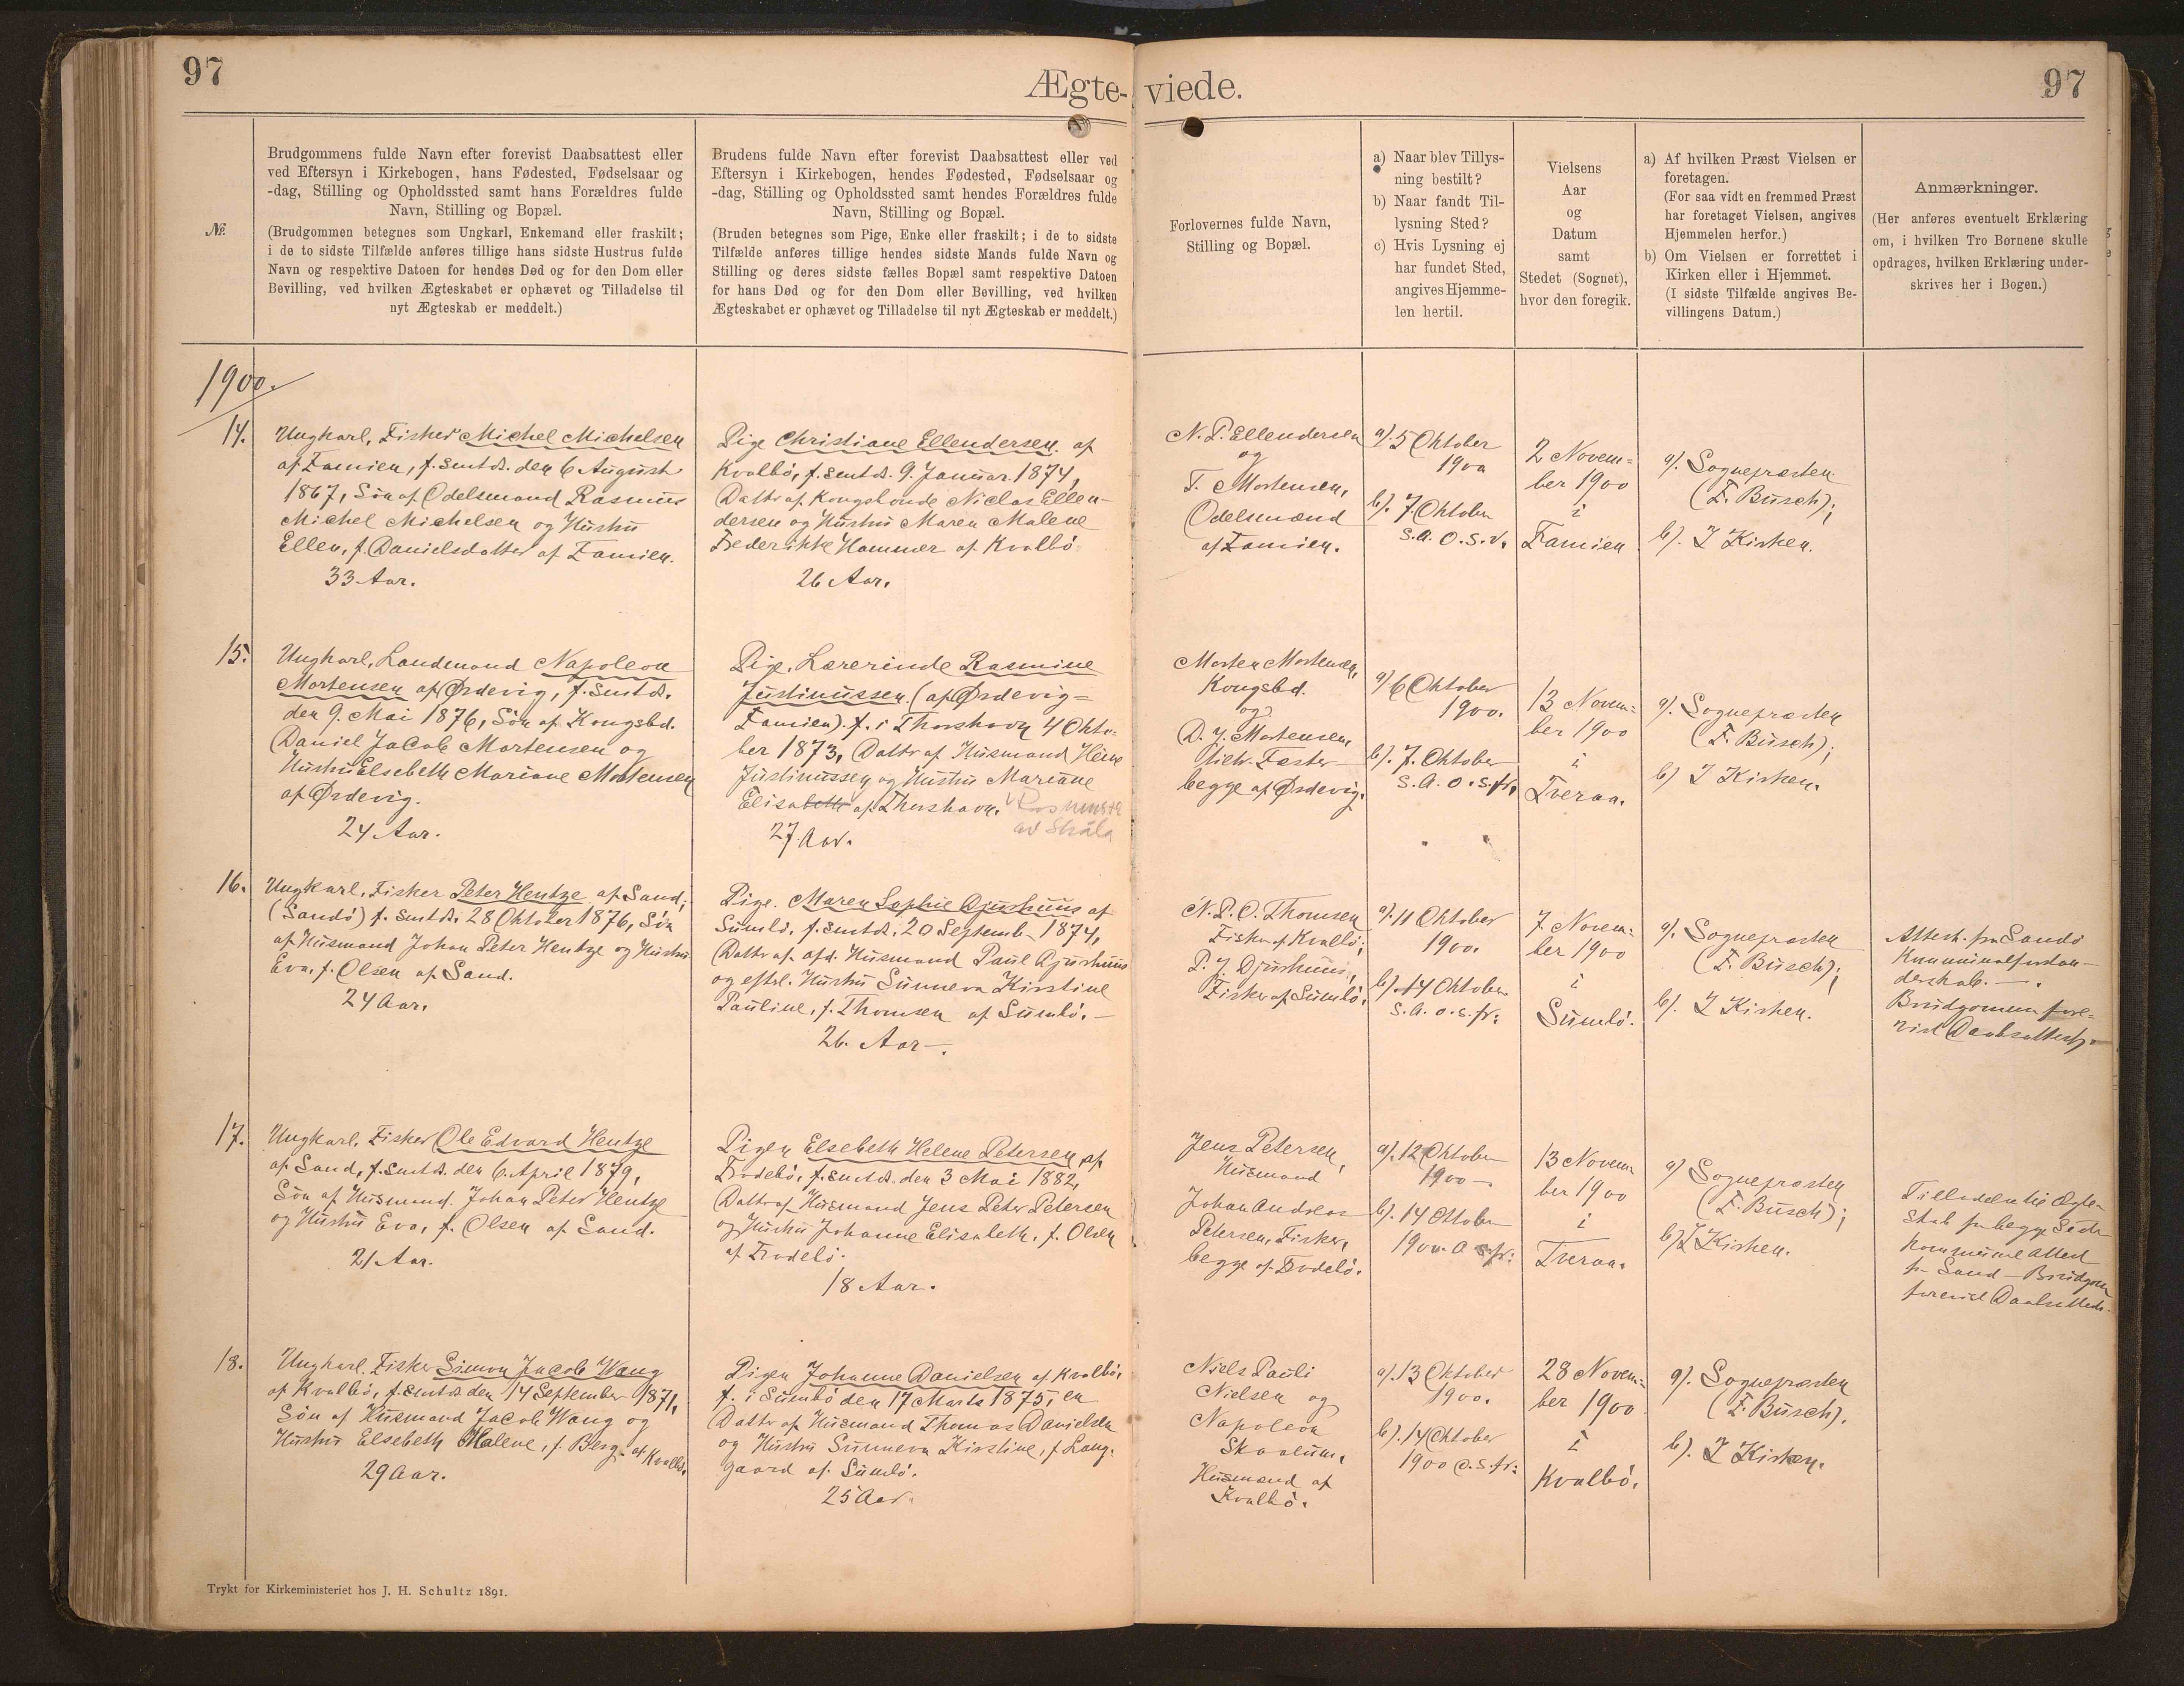 97
Ægte-viede.
97
№.
Brudgommens fulde Navn efter forevist Daabsattest eller
ved Eftersyn i Kirkebogen, hans Fødested, Fødselsaar og
-dag, Stilling og Opholdssted samt hans Forældres fulde
Navn, Stilling og Bopæl.
(Brudgommen betegnes som Ungkarl, Enkemand eller fraskilt;
i de to sidste Tilfælde anføres tillige hans sidste Hustrus fulde
Navn og respektive Datoen for hendes Død og for den Dom eller
Bevilling, ved hvilken Ægteskabet er ophævet og Tilladelse til
nyt Ægteskab er meddelt.)
Brudens fulde Navn efter forevist Daabsattest eller ved
Eftersyn i Kirkebogen, hendes Fødested, Fødselsaar og
-dag, Stilling og Opholdssted samt hendes Forældres fulde
Navn, Stilling og Bopæl.
(Bruden betegnes som Pige, Enke eller fraskilt; i de to sidste
Tilfælde anføres tillige hendes sidste Mands fulde Navn og
Stilling og deres sidste fælles Bopæl samt respektive Datoen
for hans Død og for den Dom eller Bevilling, ved hvilken
Ægteskabet er ophævet og Tilladelse til nyt Ægteskab er meddelt.)
Forlovernes fulde Navn,
Stilling og Bopæl.
a) Naar blev Tillys-
ning bestilt?
b) Naar fandt Til-
lysning Sted?
c) Hvis Lysning ej
har fundet Sted,
angives Hjemme-
len hertil.
Vielsens
Aar
og
Datum
samt
Stedet (Sognet),
hvor den foregik.
a) Af hvilken Præst Vielsen er
foretagen.
(For saa vidt en fremmed Præst
har foretaget Vielsen, angives
Hjemmelen herfor.)
b) Om Vielsen er forrettet i
Kirken eller i Hjemmet.
(I sidste Tilfælde angives Be-
villingens Datum.)
Anmærkninger.
(Her anføres eventuelt Erklæring
om, i hvilken Tro Børnene skulle
opdrages, hvilken Erklæring under-
skrives her i Bogen.)
1900.
14.
Ungkarl, Fisker Michel Michelsen
af Famien, f. smtds. den 6 August
1867, Søn af Odelsmand Rasmus
Michel Michelsen og Hustru
Ellen, f. Danielsdatter af Famien.
33 Aar.
Pige Christiane Ellendersen, af
Kvalbö, f. smtds. 9. Januar 1874,
Dattr af Kongsbonde Niclas Ellen-
dersen og Hustru Maren Malene
Frederikke Hammer af Kvalbö
26 Aar.
N. P. Ellendersen
og
T. Mortensen,
Odelsmænd
af Famien.
a). 5 Oktober
1900
b). 7. Oktober
S. A. O. S. V.
2 Novem=
ber 1900
i
Famien
a). Sognepræsten
(F. Busch);
b). I Kirken.
15.
Ungkarl, Landmand Napoleon
Mortensen af Ørdevig, f. smtds.
den 9. Mai 1876, Søn af Kongsbd.
Daniel Jacob Mortensen og
Hustru Elsebeth Mariane Mortensen
af Ørdevig.
24 Aar.
Pige, Lærerinde Rasmine
Justinussen (af Ørdevig=
Famien). f. i Thorshavn 4 Okto-
ber 1873, Dattr af Husmand Heine
Justinussen og Hustru Mariane
Elisabeth af Thorshavn. Rasmussen
av Skála
27 Aar.
Morten Mortensen,
Kongsbd.
og
D. J. Mortensen
Fæster
begge af Ørdevig.
a). 6 Oktober
1900.
b). 7. Oktober
S. A. O. S. fr.
13 Novem=
ber 1900
i
Tveraa.
a). Sognepræsten
(F. Busch);
b) I Kirken.
16.
Ungkarl, Fisker Peter Hentze af Sand;
(Sandö) f. smtds. 28 Oktober 1876, Søn
af Husmand Johan Peter Hentze og Hustru
Eva, f. Olsen af Sand.
24 Aar.
Pige. Maren Sophie Djurhuus af
Sumbö, f. smtds. 20 Septemb. 1874,
Dattr af afd. Husmand Paul Djurhuus
og eftrl. Hustru Sunneva Kirstine
Pauline, f. Thomsen af Sumbö.-
26. Aar-.
N. P. O. Thomsen
Fisker af Kvalbö;
P. J. Djurhuus,
Fisker af Sumbö.
a). 11 Oktober
1900.
b). 14 Oktober
S. A. o. s. fr:
7 Novem=
ber 1900
i
Sumbö.
a). Sognepræsten
(F. Busch);
b). I Kirken.
Attest. fra Sandö
Kommunalforstan-
derskab. -.
Brudgommen fore-
vist Daabsattest.
17.
Ungkarl. Fisker Ole Edvard Hentze
af Sand, f. smtds. den 6. April 1879,
Søn af Husmand. Johan Peter Hentze
og Hustru Eva, f. Olsen af Sand.
21 Aar.
Pigen Elsebeth Helene Petersen, af
Frodebö, f. smtds. den 3 Mai 1882,
Dattr af Husmand Jens Peter Petersen
og Hustru Johanne Elisabeth, f. Olsen
af Frodebö.
18 Aar.
Jens Petersen,
Husmand
Johan Andreas
Petersen, Fisker,
begge af Frodebö.
a). 12 Oktober
1900
b). 14 Oktober
1900 o. s. fr:
13 Novem
ber 1900
i
Tveraa.
a) Sognepræsten
(F. Busch);
b) I Kirken.
Tilladelse til Ægte-
skab fra begge Sider
Kommune Attest
fra Sand - Brudgom
forevist Daabsattest.
18.
Ungkarl. Fisker Simon Jacob Wang
af Kvalbö, f. smtds. den 14 September 1871,
Søn af Husmand Jacob Wang og
Hustru Elsebeth Malene, f. Berg af Kvalbö.
29 Aar.
Pigen Johanne Danielsen af Kvalbö,
f. i Sumbö den 17 Marts 1875, en
Dattr af Husmand Thomas Danielsen
og Hustru Sunneva Kirstine, f. Lang-
gaard af Sumbö.
25 Aar.
Niels Pauli
Nielsen og
Napoleon
Skaalum,
Husmænd af
Kvalbö.
a). 13 Oktober
1900.
b). 14 Oktober
1900 o. s. fr:
28 Novem=
ber 1900
i
Kvalbö.
a). Sognepræsten
(F. Busch).
b). I Kirken.
Trykt for Kirkeministeriet hos J. H. Schultz 1891.